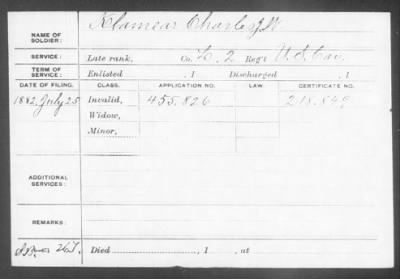 NAME OF SOLDIER: Klamear Charles J. W.
SERVICE: Late rank, Co. K, 2 Reg't U.S. Cav.
TERM OF SERVICE: Enlisted , 1 Discharged , 1
DATE OF FILING. CLASS. APPLICATION NO. LAW CERTIFICATE NO.
1882, July 25 Invalid, 455.826 218.849
Widow,
Minor,
ADDITIONAL SERVICES:
REMARKS:
Died , 1 , at